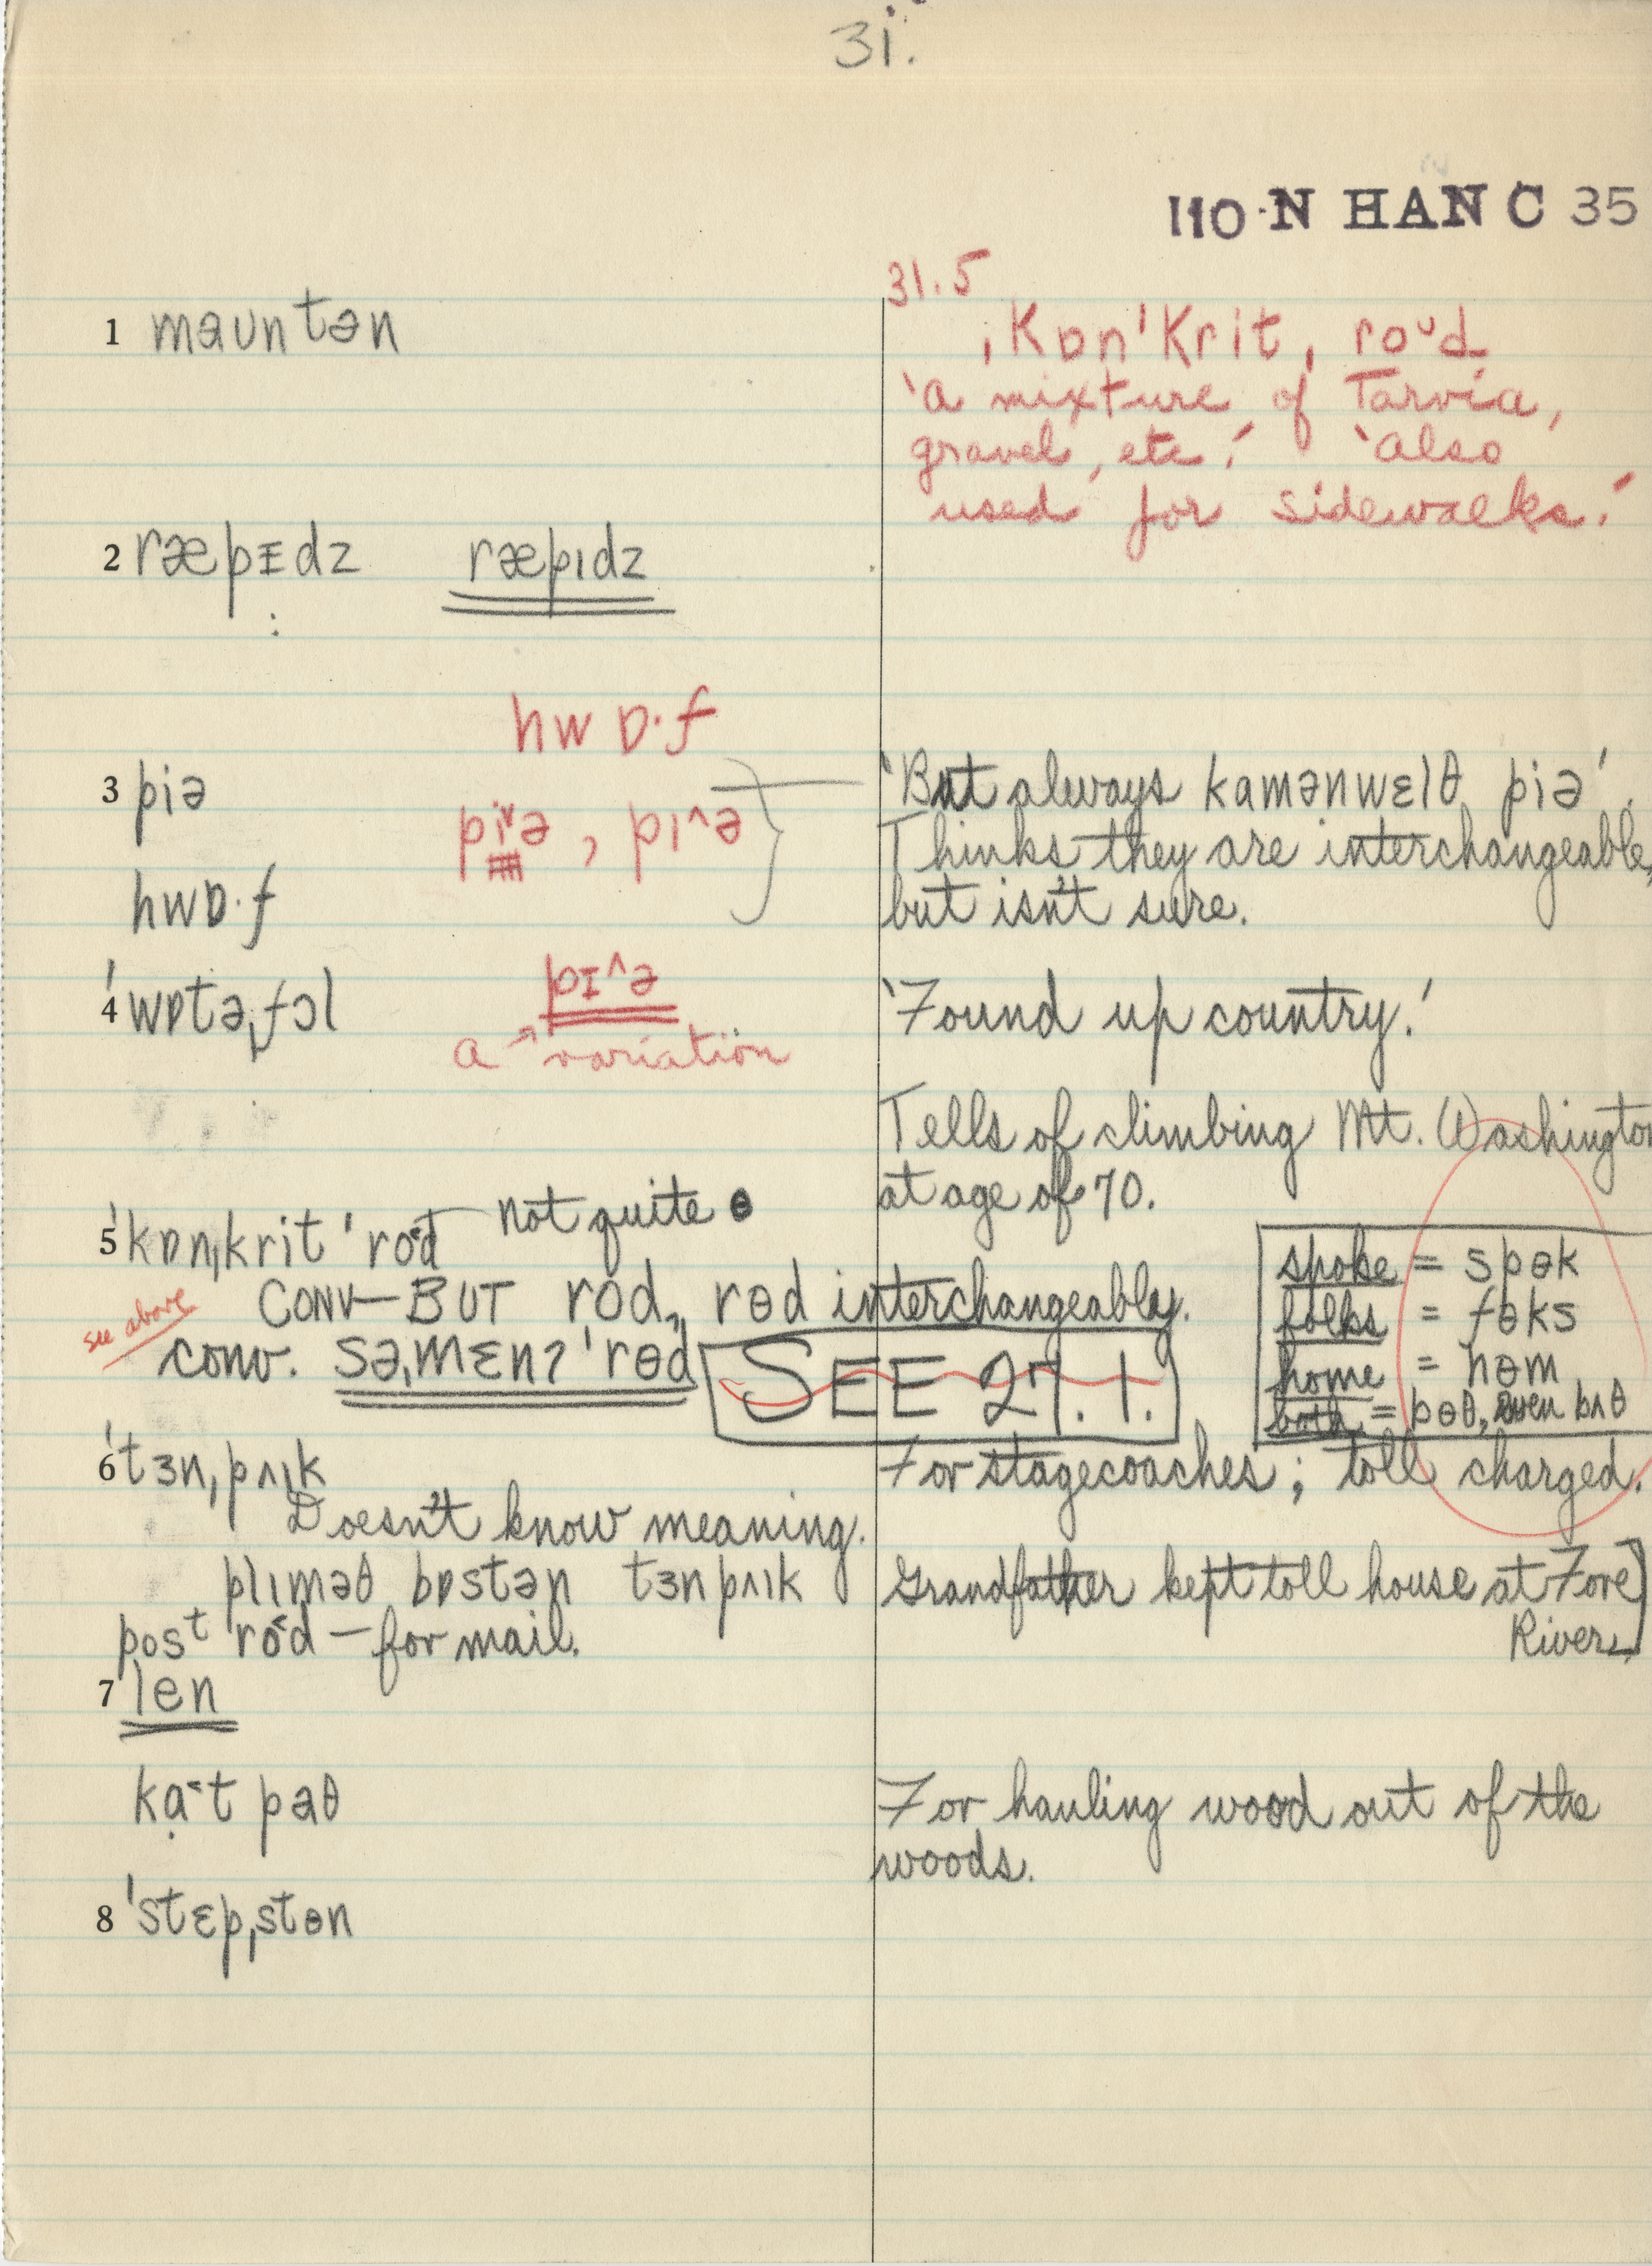 31.
110 N HAN C 35
31.5
ˌKɒnˈKrit ˌroᴜd
'a mixture of Tarvia,
gravel, etc.' 'Also
used for sidewalks.'
1 maʊntən
2 ræpɪdz ræpɪdz
hwɒ·f
3 piə
piˇə, pɪ^ə
'But always kamənwɛlθ piə'.
Thinks they are interchangeable,
but isn't sure.
hwɒ·f
4 ˈwɒtəˌfɔl
pɪ^ə
a → variation
'Found up country.'
Tells of climbing Mt. Washington
at age of 70.
5 ˈkɒnˌkrit ˈrod not quite ɵ
CONV—BUT rod, rɵd interchangeably.
see above
conv. səˌmɛnʔ ˈrɵd
SEE 27.1.
spoke = spɵk
folks = fɵks
home = hɵm
both = bɵθ, even bʌθ
6 ˈtɜnˌpʌɪk
For stagecoaches; toll charged.
Doesn't know meaning.
plɪməθ bɒstən tɜnpʌɪk
Grandfather kept toll house at Fore
River.]
post rod — for mail.
7 len
ka˂t paθ
For hauling wood out of the
woods.
8 ˈstɛpˌstɵn